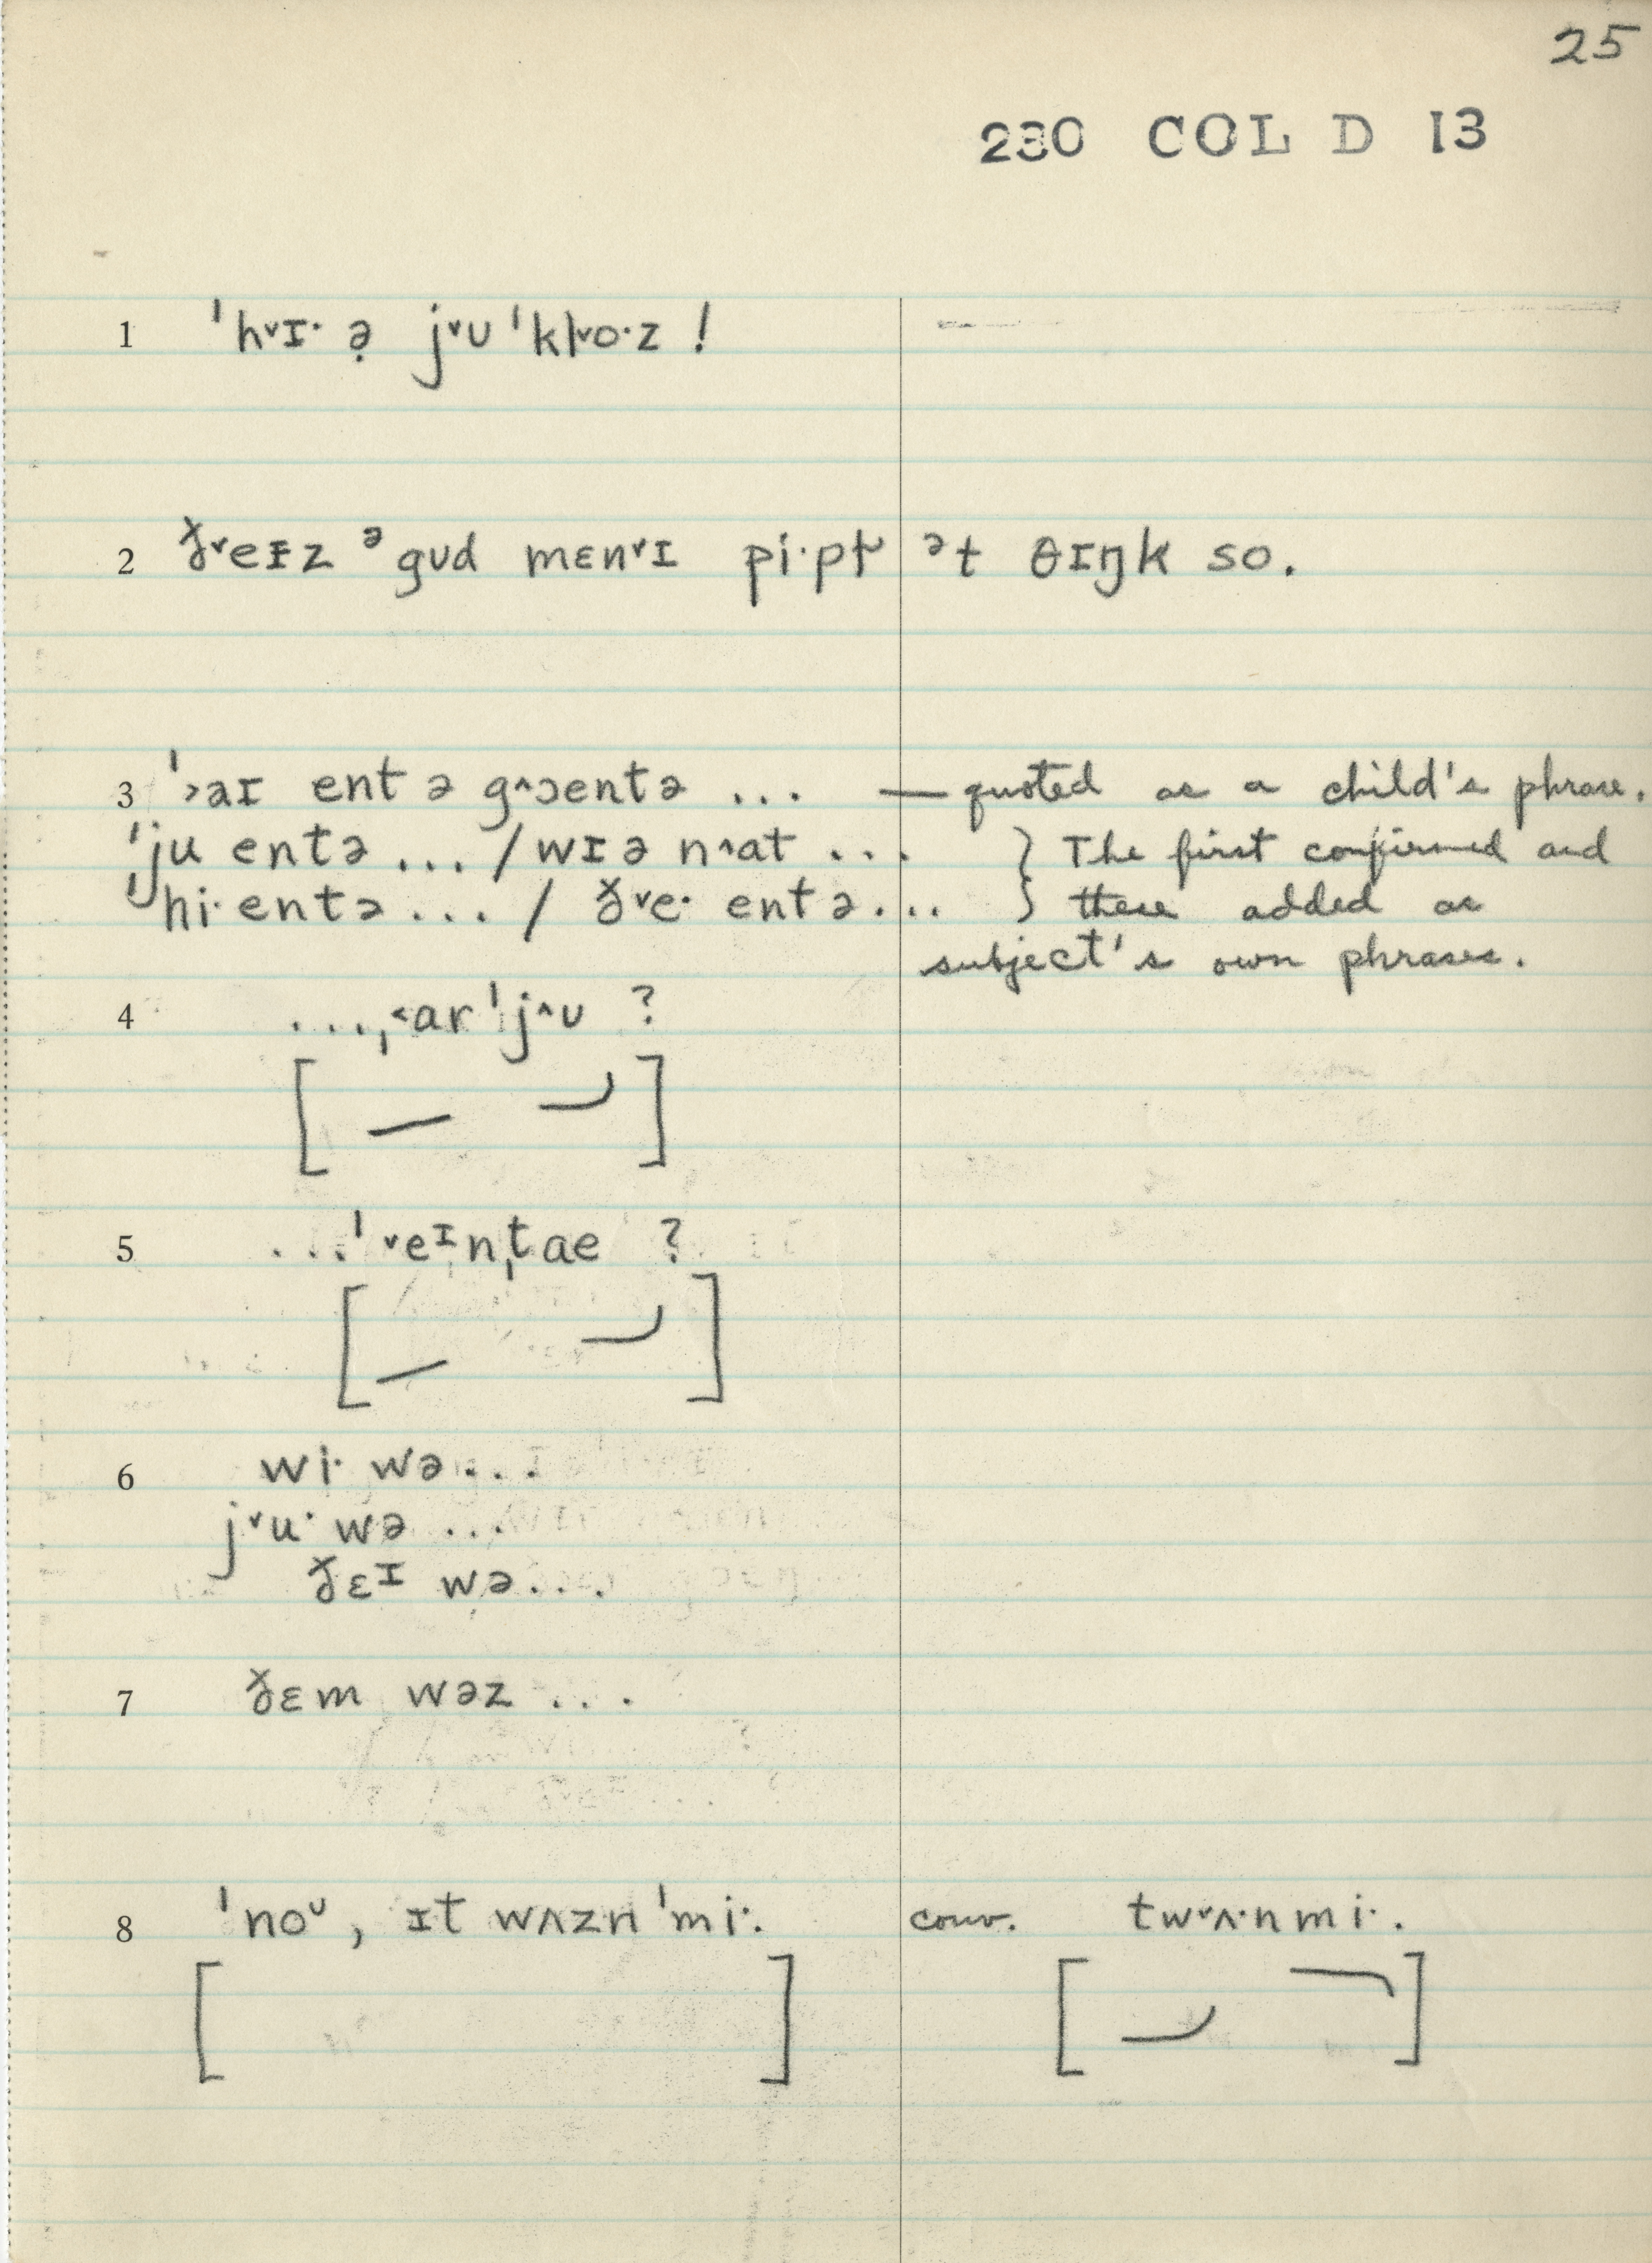 25
230 COL D 13
1 ˈh˅ɪ· ə̣ j˅u ˈkɫ˅o·z !
2 ð˅eɪz ᵊgʊd mɛn˅ɪ pi·pɫ˅ ᵊt θɪŋk so.
3 ˈ˃aɪ ent ə g^ɔentə ... — quoted as a child's phrase.
ˈju entə ... / wɪə n^at ... } The first confirmed and
ˈhi· entə ... / ð˅e· entə ... } these added as
subject's own phrases.
4 ...ˌ˂ar ˈj^u ?
[ ]
5 ...ˈ˅eᶦnˌtae ?
[ ]
6 wi· wə ...
j˅u· wə ...
ðɛᶦ wə ...
7 ðɛm wəz ...
8 ˈnoᶸ, ɪt wʌzn ˈmi·. conv. tw˅ʌ·n mi·.
[ ] [ ]